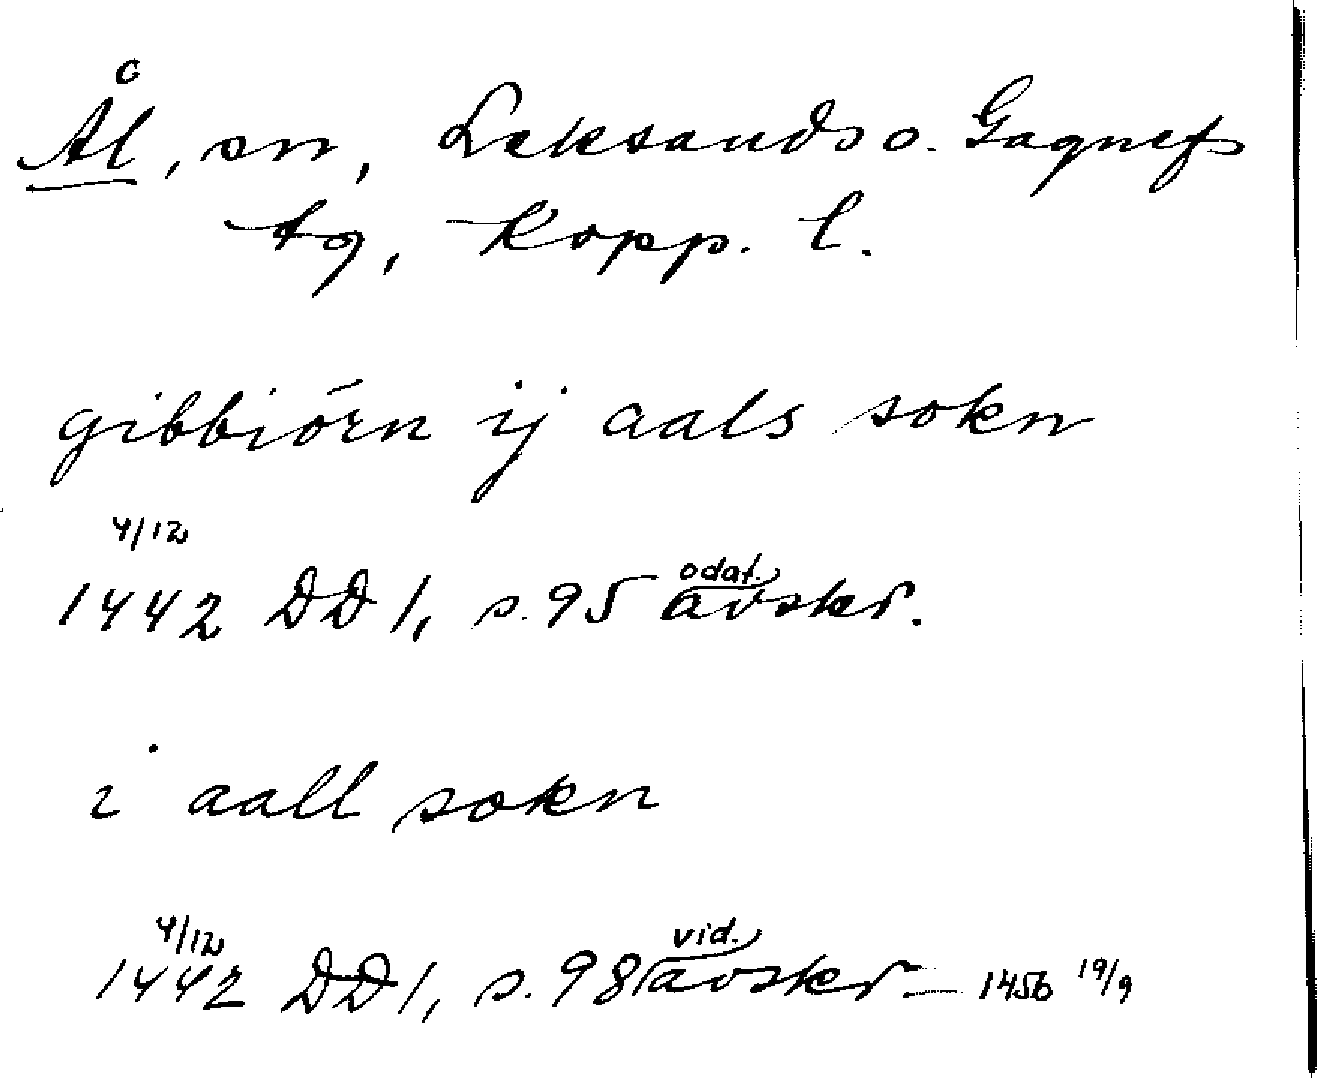 Ål, sn, Leksands o. Gagnefs
tg, Kopp. l.
gibbiórn ij aals sokn
4/12
1442 DD 1, s. 95 odat. avskr.
i aall sokn
4/12
1442 DD 1, s. 98 vid. avskr. – 1456 19/9